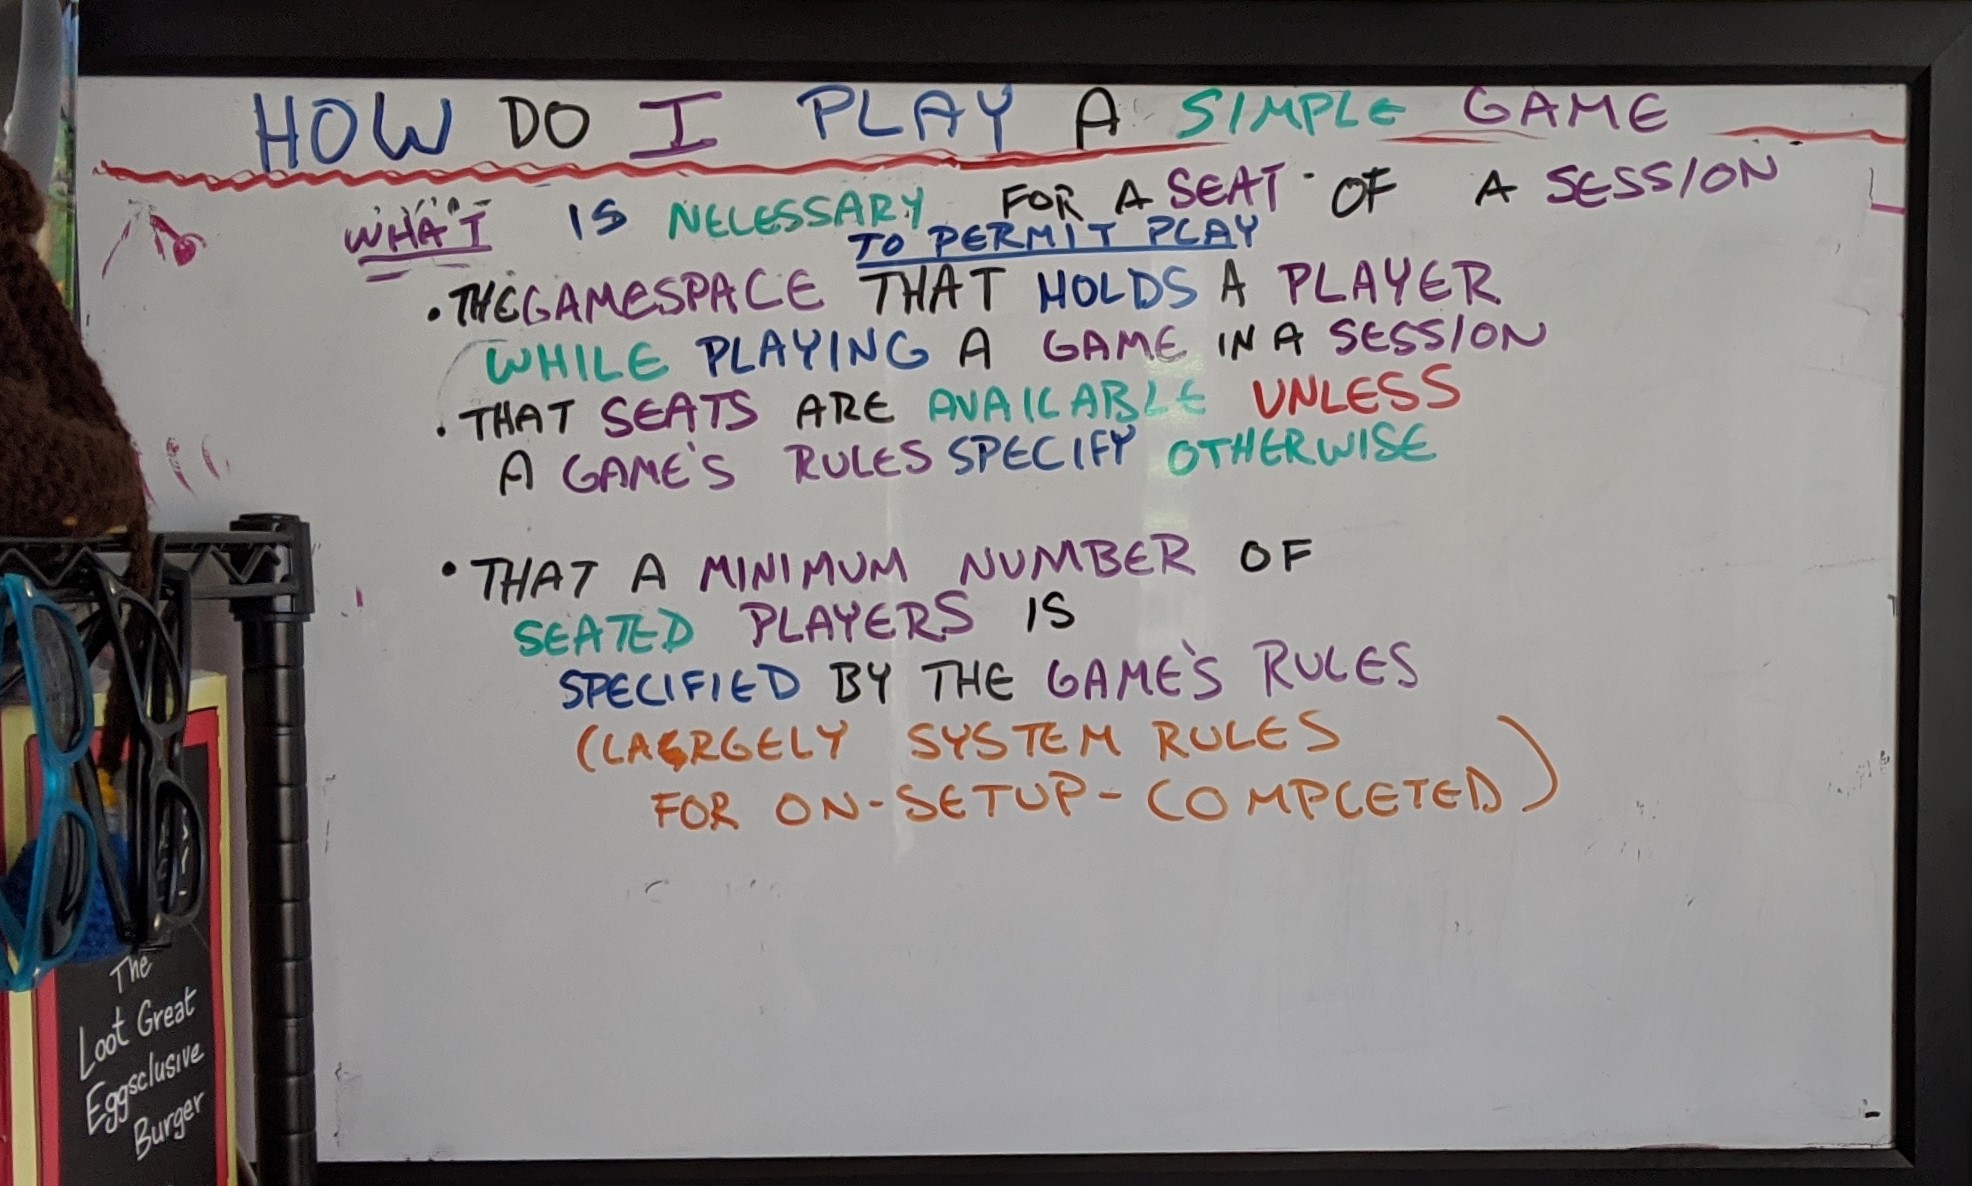 HOW DO I PLAY A SIMPLE GAME
WHAT IS NECESSARY FOR A SEAT OF A SESSION
TO PERMIT PLAY
• THE GAMESPACE THAT HOLDS A PLAYER
WHILE PLAYING A GAME IN A SESSION
• THAT SEATS ARE AVAILABLE UNLESS
A GAME'S RULES SPECIFY OTHERWISE
• THAT A MINIMUM NUMBER OF
SEATED PLAYERS IS
SPECIFIED BY THE GAME'S RULES
(LARGELY SYSTEM RULES
FOR ON-SETUP-COMPLETED)
The
Loot Great
Eggsclusive
Burger